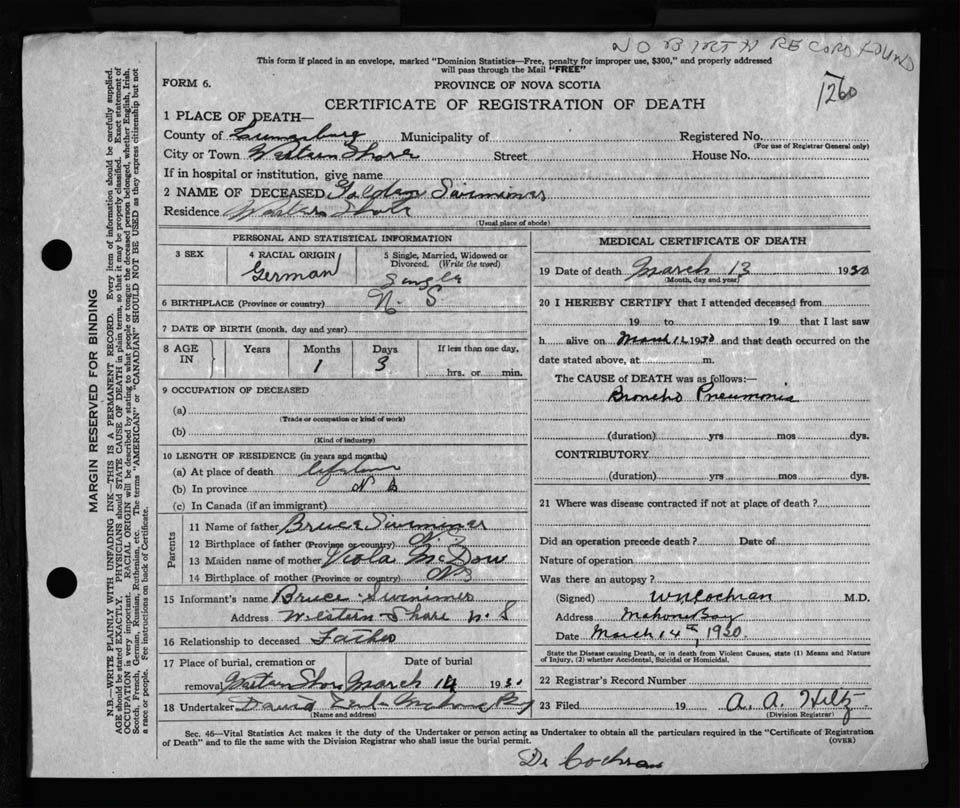 NO BIRTH RECORD FOUND
This form if placed in an envelope, marked "Dominion Statistics—Free, penalty for improper use, $300," and properly addressed
will pass through the Mail "FREE"
1260
FORM 6.
PROVINCE OF NOVA SCOTIA
CERTIFICATE OF REGISTRATION OF DEATH
1 PLACE OF DEATH—
County of Lunenburg Municipality of Registered No.
(For use of Registrar General only)
City or Town Western Shore Street House No.
If in hospital or institution, give name
2 NAME OF DECEASED Swiminer
Residence Western Shore
(Usual place of abode)
PERSONAL AND STATISTICAL INFORMATION
3 SEX
4 RACIAL ORIGIN
German
5 Single, Married, Widowed or
Divorced. (Write the word)
Single
6 BIRTHPLACE (Province or country) N. S
7 DATE OF BIRTH (month, day and year)
8 AGE IN Years Months Days If less than one day,
1 3 hrs. or min.
9 OCCUPATION OF DECEASED
(a)
(Trade or occupation or kind of work)
(b)
(Kind of industry)
10 LENGTH OF RESIDENCE (in years and months)
(a) At place of death lifetime
(b) In province N S
(c) In Canada (if an immigrant)
Parents
11 Name of father Bruce Swiminer
12 Birthplace of father (Province or country) N.S.
13 Maiden name of mother Viola McDow
14 Birthplace of mother (Province or country) NS
15 Informant's name Bruce Swinimer
Address Western Shore N. S
16 Relationship to deceased Father
17 Place of burial, cremation or Date of burial
removal Western Shore March 14 1930
18 Undertaker David Mahone Bay
(Name and address)
MEDICAL CERTIFICATE OF DEATH
19 Date of death March 13 1930
(Month, day and year)
20 I HEREBY CERTIFY that I attended deceased from
19 to 19 that I last saw
h alive on March 12 1930 and that death occurred on the
date stated above, at m.
The CAUSE of DEATH was as follows:—
Broncho Pneumonia
(duration) yrs mos dys.
CONTRIBUTORY
(duration) yrs mos dys.
21 Where was disease contracted if not at place of death?
Did an operation precede death? Date of
Nature of operation
Was there an autopsy?
(Signed) Cochran M.D.
Address Mahone Bay
Date March 14th, 1930
State the Disease causing Death, or in death from Violent Causes, state (1) Means and Nature
of Injury, (2) whether Accidental, Suicidal or Homicidal.
22 Registrar's Record Number
23 Filed 19 A. A. Hiltz
(Division Registrar)
Sec. 46—Vital Statistics Act makes it the duty of the Undertaker or person acting as Undertaker to obtain all the particulars required in the "Certificate of Registration
of Death" and to file the same with the Division Registrar who shall issue the burial permit. (OVER)
Dr Cochran
MARGIN RESERVED FOR BINDING
N.B.—WRITE PLAINLY WITH UNFADING INK—THIS IS A PERMANENT RECORD. Every item of information should be carefully supplied.
AGE should be stated EXACTLY. PHYSICIANS should STATE CAUSE OF DEATH in plain terms, so that it may be properly classified. Exact statement of
OCCUPATION is very important. RACIAL ORIGIN will be described by stating to what people or tongue the deceased person belonged, whether English, Irish,
Scotch, French, German, Russian, Ruthenian, etc. The terms "AMERICAN" or "CANADIAN" SHOULD NOT BE USED as they express citizenship but not
a race or people. Fee instructions on back of Certificate.